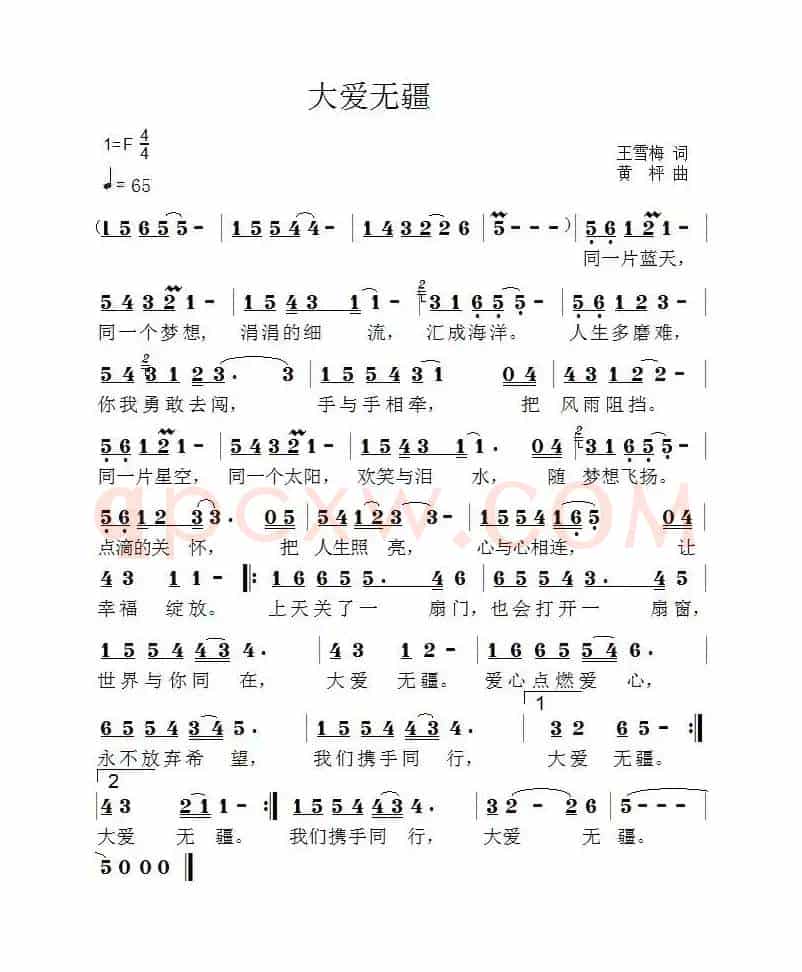 大爱无疆
1=F 4/4
王雪梅 词
♩= 65
黄 枰 曲
(1 5 6 5 5 - | 1 5 5 4 4 - | 1 4 3 2 2 6 | 5 - - - ) | 5 6 1 2 1 - |
同一片蓝天，
5 4 3 2 1 - | 1 5 4 3 1 1 - | 2 3 1 6 5 5 - | 5 6 1 2 3 - |
同一个梦想， 涓涓的细 流， 汇成海洋。 人生多磨难，
5 4 2 3 1 2 3 . 3 | 1 5 5 4 3 1 0 4 | 4 3 1 2 2 - |
你我勇敢去闯， 手与手相牵， 把 风雨阻挡。
5 6 1 2 1 - | 5 4 3 2 1 - | 1 5 4 3 1 1 . 0 4 | 2 3 1 6 5 5 - |
同一片星空， 同一个太阳， 欢笑与泪 水， 随 梦想飞扬。
5 6 1 2 3 3 . 0 5 | 5 4 1 2 3 3 - | 1 5 5 4 1 6 5 0 4 |
点滴的关 怀， 把 人生照 亮， 心与心相连， 让
4 3 1 1 - ‖: 1 6 6 5 5 . 4 6 | 0 5 5 5 3 . 4 5 |
幸福 绽放。 上天关了一 扇门，也会打开一 扇窗，
1 5 5 4 4 3 4 . | 4 3 1 2 - | 1 6 6 5 5 4 6 . |
世界与你同 在， 大爱 无疆。 爱心点燃爱 心，
1
6 5 5 4 3 4 5 . | 1 5 5 4 4 3 4 . | 3 2 6 5 - :‖
永不放弃希 望， 我们携手同 行， 大爱 无疆。
2
4 3 2 1 1 - :‖ 1 5 5 4 4 3 4 . | 3 2 - 2 6 | 5 - - - |
大爱 无 疆。 我们携手同 行， 大爱 无 疆。
5 0 0 0 ‖
qpcxw.COM